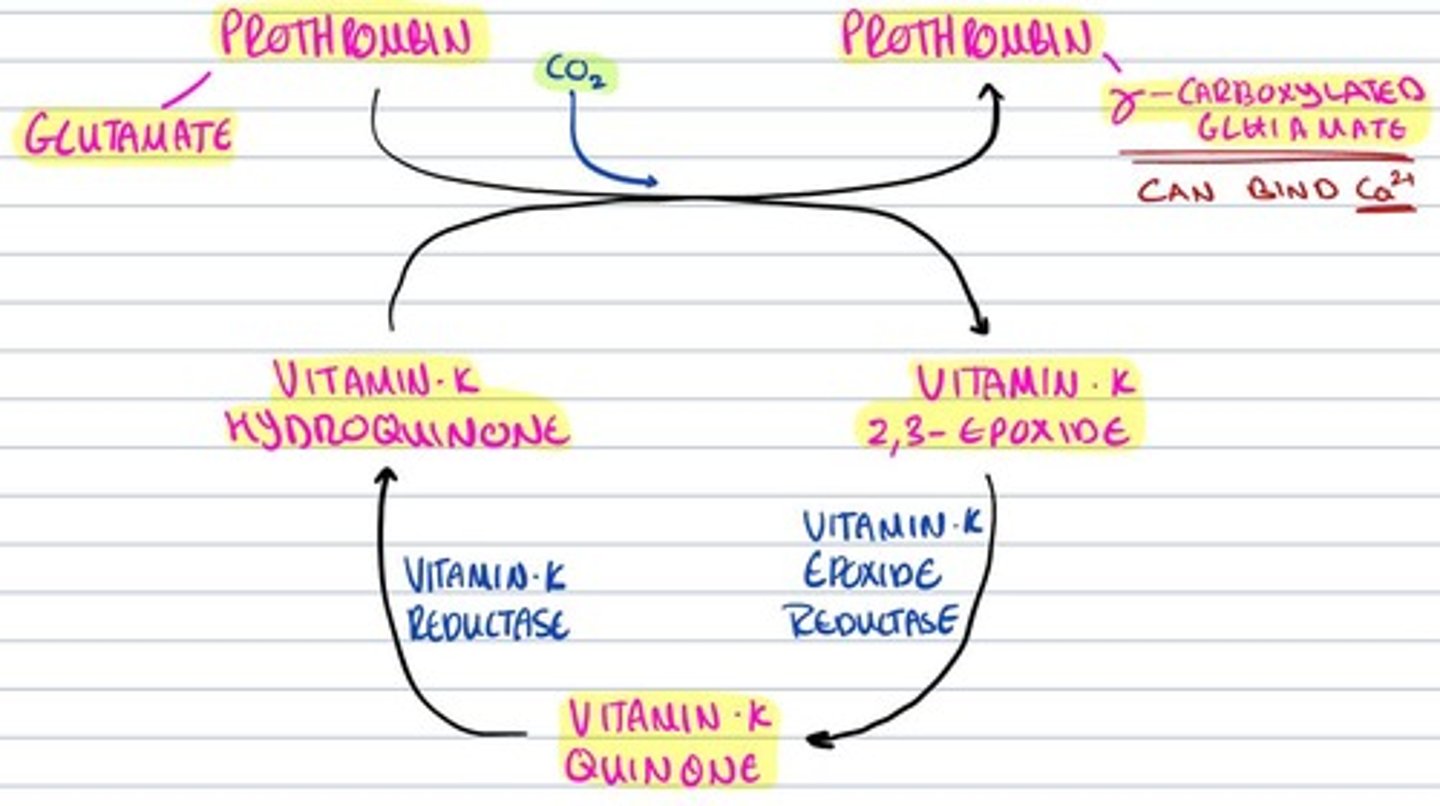 PROTHROMBIN
GLUTAMATE
CO₂
PROTHROMBIN
γ-CARBOXYLATED
GLUTAMATE
CAN BIND Ca²⁺
VITAMIN·K
HYDROQUINONE
VITAMIN·K
2,3-EPOXIDE
VITAMIN·K
REDUCTASE
VITAMIN·K
EPOXIDE
REDUCTASE
VITAMIN·K
QUINONE